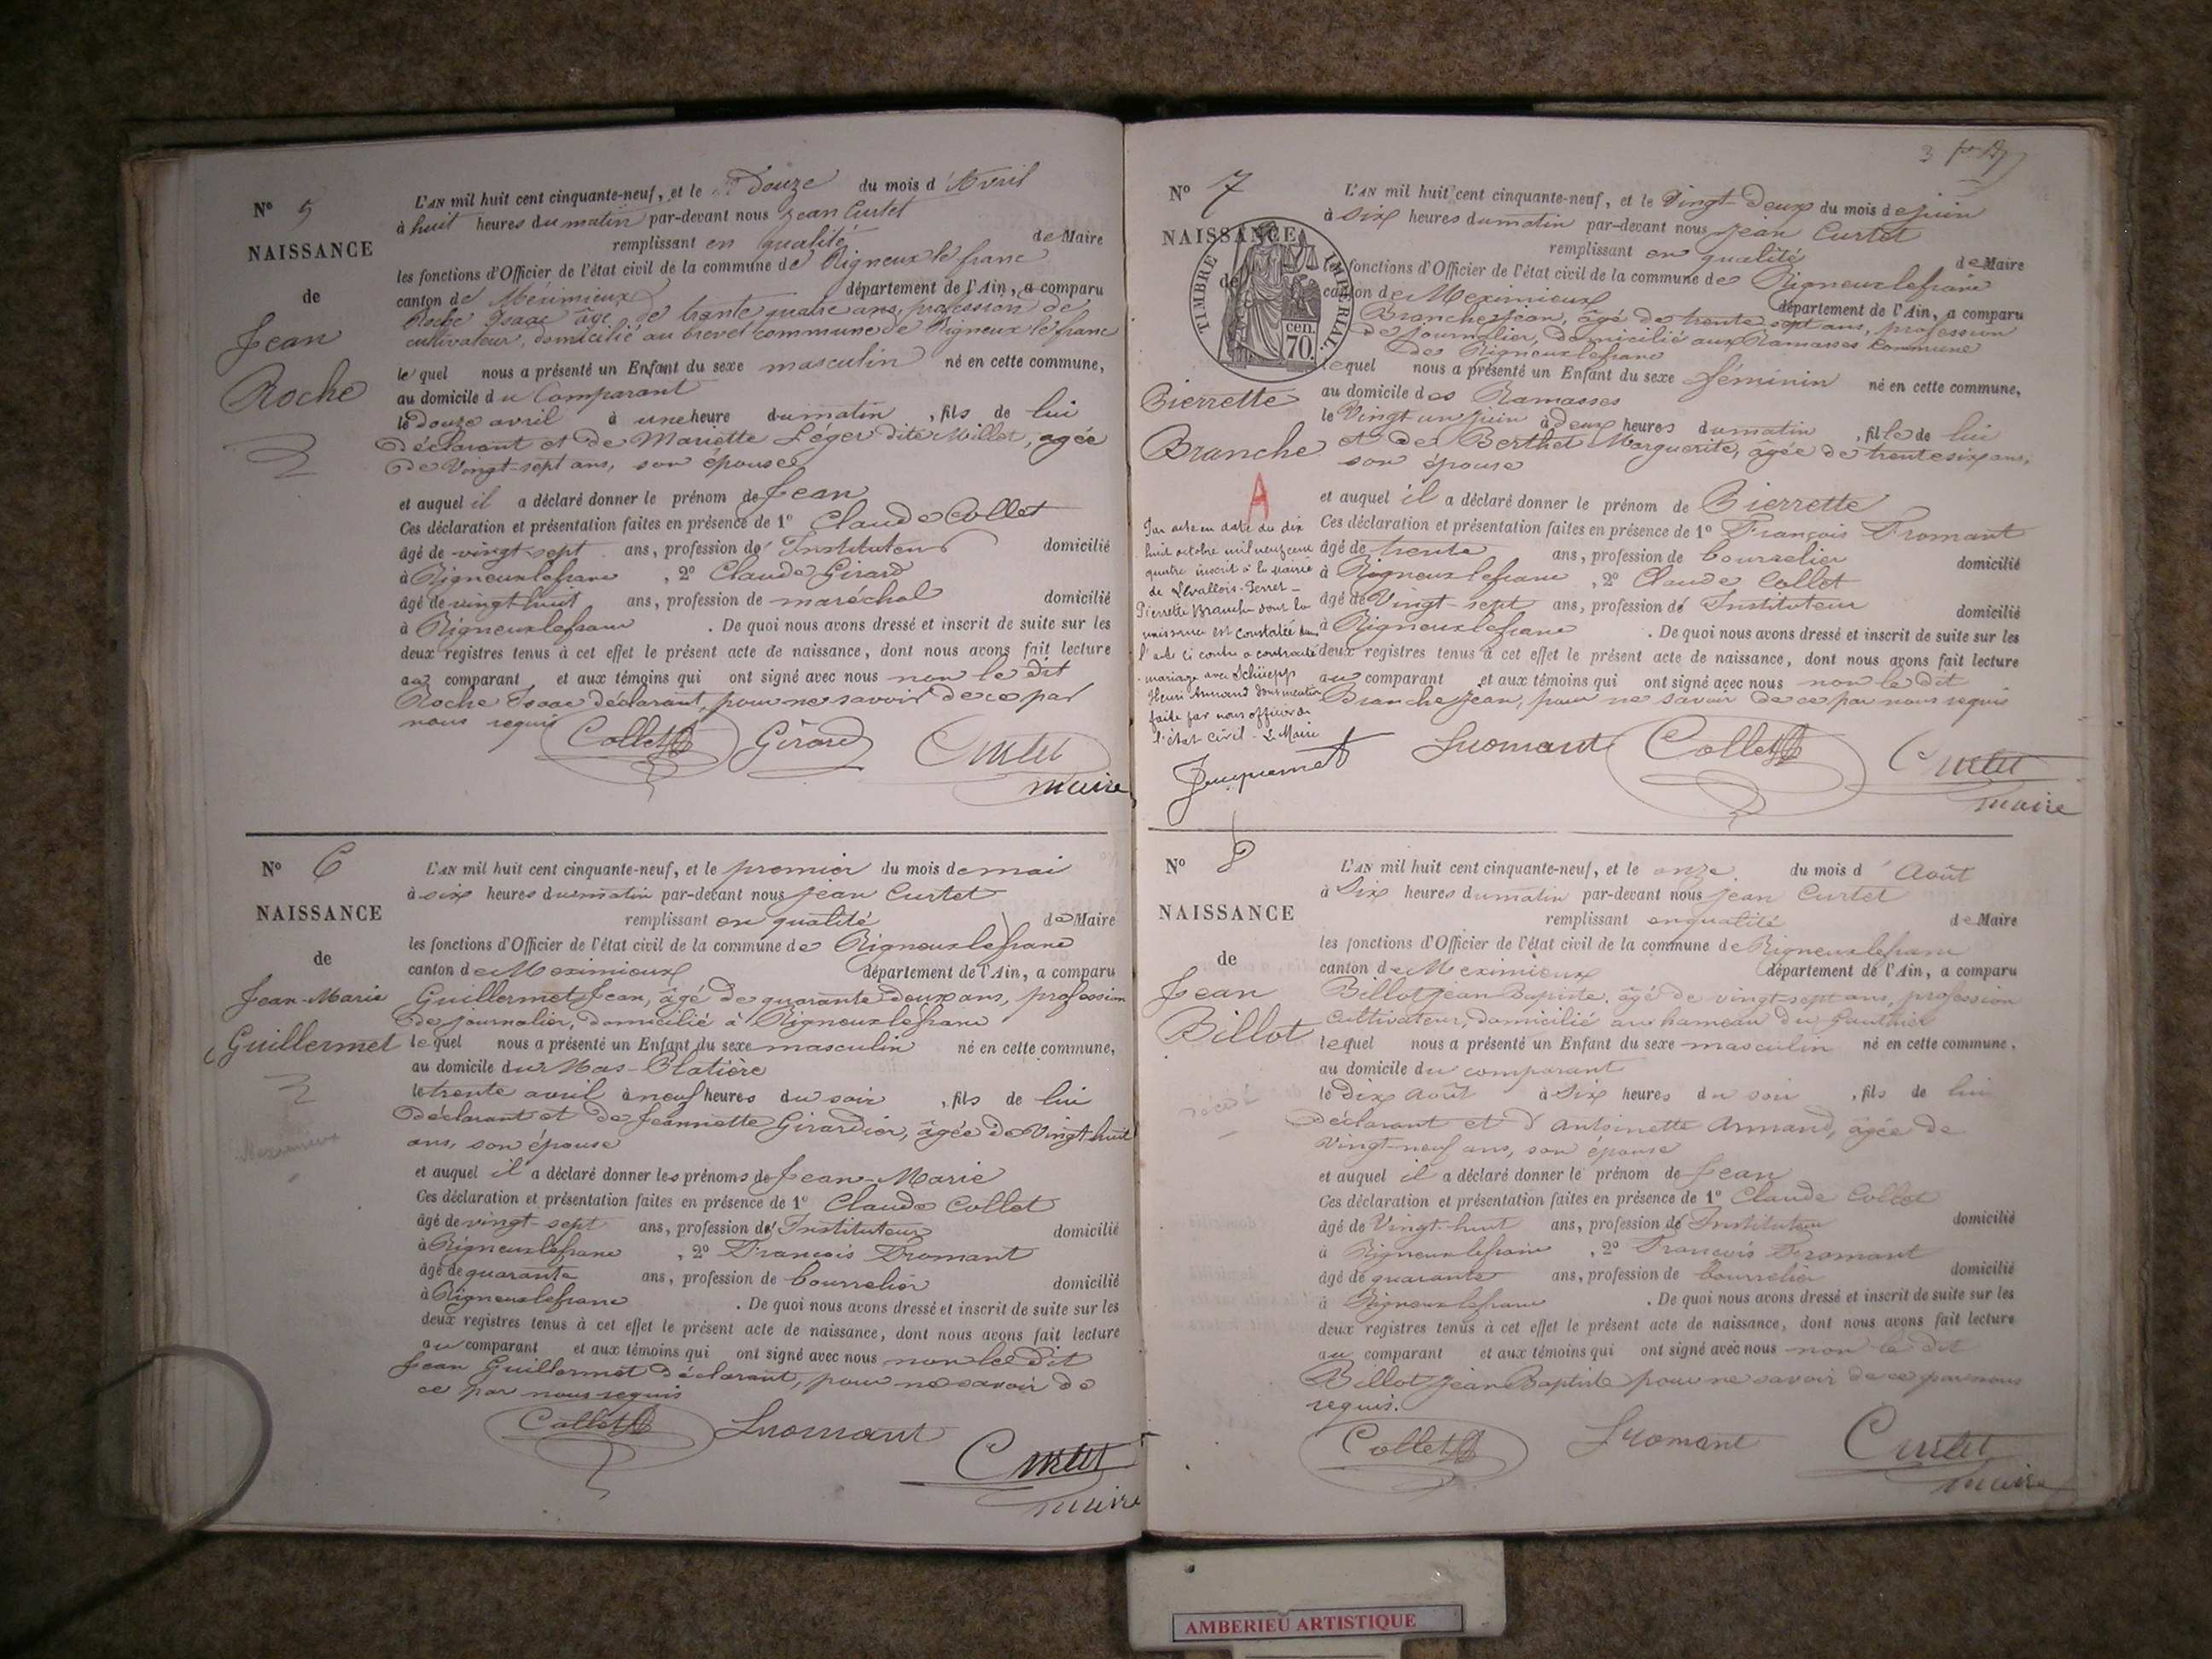 N° 5
NAISSANCE
de
Jean
Roche
L'AN mil huit cent cinquante-neuf, et le Douze du mois d'Avril
à huit heures du matin par-devant nous Jean Curtet
remplissant en qualité de Maire
les fonctions d'Officier de l'état civil de la commune de Rigneux le franc
canton de Méximieux département de l'Ain, a comparu
Roche Isaac âgé de trente quatre ans, profession de
cultivateur, domicilié au brevet commune de Rigneux le franc
lequel nous a présenté un Enfant du sexe masculin né en cette commune,
au domicile du Comparant
le douze avril à une heure du matin, fils de lui
déclarant et de Mariette Léger dite Millet, agée
de Vingt-sept ans, son épouse
et auquel il a déclaré donner le prénom de Jean
Ces déclaration et présentation faites en présence de 1° Claude Collet
âgé de vingt-sept ans, profession de Instituteur domicilié
à Rigneux le franc, 2° Claude Girard
âgé de vingt huit ans, profession de maréchal domicilié
à Rigneux le franc. De quoi nous avons dressé et inscrit de suite sur les
deux registres tenus à cet effet le présent acte de naissance, dont nous avons fait lecture
au comparant et aux témoins qui ont signé avec nous non le dit
Roche Isaac déclarant, pour ne savoir de ce par
nous requis
Collet Girard Curtet
maire
N° 6
NAISSANCE
de
Jean-Marie
Guillermet
L'AN mil huit cent cinquante-neuf, et le premier du mois de mai
à six heures du matin par-devant nous Jean Curtet
remplissant en qualité de Maire
les fonctions d'Officier de l'état civil de la commune de Rigneux le franc
canton de Meximieux département de l'Ain, a comparu
Guillermet Jean, âgé de quarante deux ans, profession
de journalier, domicilié à Rigneux le franc
lequel nous a présenté un Enfant du sexe masculin né en cette commune,
au domicile du Mas-Platière
le trente avril à neuf heures du soir, fils de lui
déclarant et de Jeannette Girardier, âgée de Vingt huit
ans, son épouse
et auquel il a déclaré donner les prénoms de Jean-Marie
Ces déclaration et présentation faites en présence de 1° Claude Collet
âgé de vingt-sept ans, profession d'Instituteur domicilié
à Rigneux le franc, 2° François Fromant
âgé de quarante ans, profession de bourrelier domicilié
à Rigneux le franc. De quoi nous avons dressé et inscrit de suite sur les
deux registres tenus à cet effet le présent acte de naissance, dont nous avons fait lecture
au comparant et aux témoins qui ont signé avec nous non le dit
Jean Guillermet déclarant, pour ne savoir de
ce par nous requis
Collet Fromant Curtet
maire
3
N° 7
NAISSANCE
de
TIMBRE IMPERIAL
70 cen.
Pierrette
Branche
L'AN mil huit cent cinquante-neuf, et le Vingt-Deux du mois de juin
à six heures du matin par-devant nous Jean Curtet
remplissant en qualité de Maire
les fonctions d'Officier de l'état civil de la commune de Rigneux le franc
canton de Meximieux département de l'Ain, a comparu
Branche Jean, âgé de trente sept ans, profession
de journalier, domicilié aux Ramasses Commune
de Rigneux le franc
lequel nous a présenté un Enfant du sexe féminin né en cette commune,
au domicile des Ramasses
le Vingt un juin à deux heures du matin, fille de lui
et de Berthet Marguerite, âgée de trente six ans,
son épouse
et auquel il a déclaré donner le prénom de Pierrette
Ces déclaration et présentation faites en présence de 1° François Fromant
âgé de trente ans, profession de bourrelier domicilié
à Rigneux le franc, 2° Claude Collet
âgé de Vingt-sept ans, profession de Instituteur domicilié
à Rigneux le franc. De quoi nous avons dressé et inscrit de suite sur les
deux registres tenus à cet effet le présent acte de naissance, dont nous avons fait lecture
au comparant et aux témoins qui ont signé avec nous non le dit
Branche Jean, pour ne savoir de ce par nous requis
Fromant Collet Curtet
maire
A
Par acte en date du dix
huit octobre mil neuf cent
quatre inscrit à la Mairie
de Levallois-Perret
Pierrette Branche dont la
naissance est constatée dans
l'acte ci contre a contracté
mariage avec Schüepp
Henri Armand dont mention
faite par nous officier de
l'état civil - Le Maire
Jacquemet
N° 8
NAISSANCE
de
Jean
Billot
Décédé
L'AN mil huit cent cinquante-neuf, et le onze du mois d'Août
à Six heures du matin par-devant nous Jean Curtet
remplissant en qualité de Maire
les fonctions d'Officier de l'état civil de la commune de Rigneux le franc
canton de Meximieux département de l'Ain, a comparu
Billot Jean Baptiste, âgé de vingt-sept ans, profession
Cultivateur, domicilié au hameau du Gauthier
lequel nous a présenté un Enfant du sexe masculin né en cette commune,
au domicile du comparant
le Dix Août à Six heures du soir, fils de lui
déclarant et d'Antoinette Armand, âgée de
Vingt-neuf ans, son épouse
et auquel il a déclaré donner le prénom de Jean
Ces déclaration et présentation faites en présence de 1° Claude Collet
âgé de Vingt-huit ans, profession de Instituteur domicilié
à Rigneux le franc, 2° François Fromant
âgé de quarante ans, profession de bourrelier domicilié
à Rigneux le franc. De quoi nous avons dressé et inscrit de suite sur les
deux registres tenus à cet effet le présent acte de naissance, dont nous avons fait lecture
au comparant et aux témoins qui ont signé avec nous non le dit
Billot Jean Baptiste pour ne savoir de ce par nous
requis.
Collet Fromant Curtet
maire
AMBERIEU ARTISTIQUE